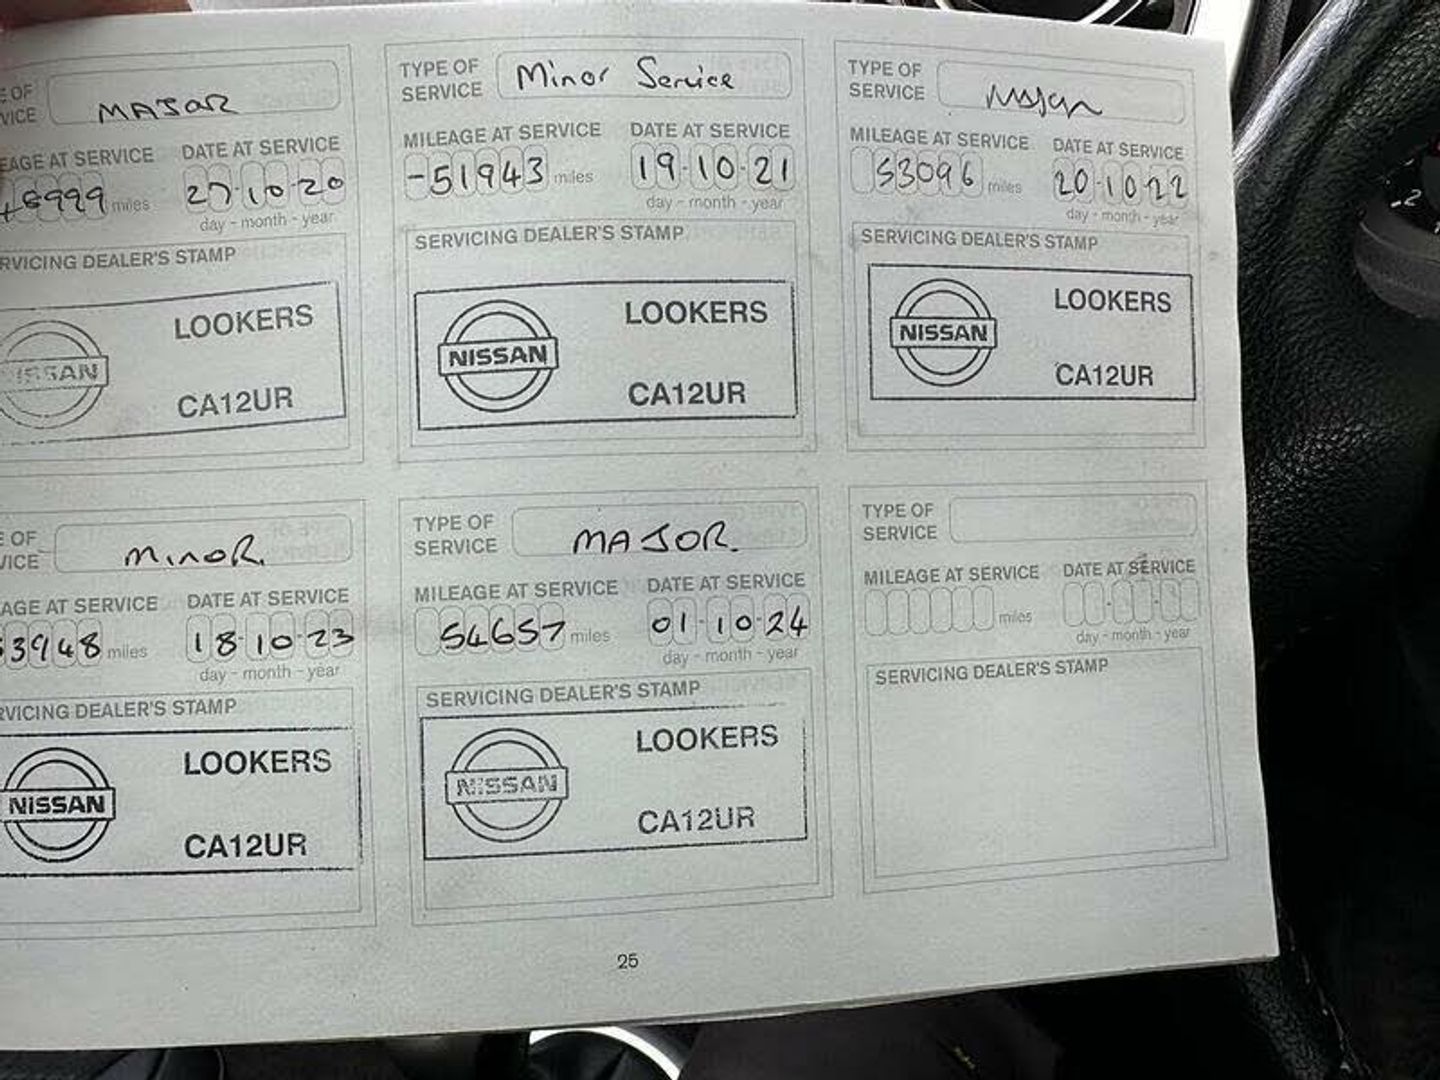 E OF
VICE
MAJOR
EAGE AT SERVICE DATE AT SERVICE
48999 miles 27-10-20
day - month - year
RVICING DEALER'S STAMP
NISSAN
LOOKERS
CA12UR
TYPE OF
SERVICE
Minor Service
MILEAGE AT SERVICE DATE AT SERVICE
-51943 miles 19-10-21
day - month - year
SERVICING DEALER'S STAMP
NISSAN
LOOKERS
CA12UR
TYPE OF
SERVICE
Major
MILEAGE AT SERVICE DATE AT SERVICE
53096 miles 20-10-22
day - month - year
SERVICING DEALER'S STAMP
NISSAN
LOOKERS
CA12UR
E OF
VICE
MINOR.
AGE AT SERVICE DATE AT SERVICE
53948 miles 18-10-23
day - month - year
RVICING DEALER'S STAMP
NISSAN
LOOKERS
CA12UR
TYPE OF
SERVICE
MAJOR.
MILEAGE AT SERVICE DATE AT SERVICE
54657 miles 01-10-24
day - month - year
SERVICING DEALER'S STAMP
NISSAN
LOOKERS
CA12UR
TYPE OF
SERVICE
MILEAGE AT SERVICE DATE AT SERVICE
miles
day - month - year
SERVICING DEALER'S STAMP
25